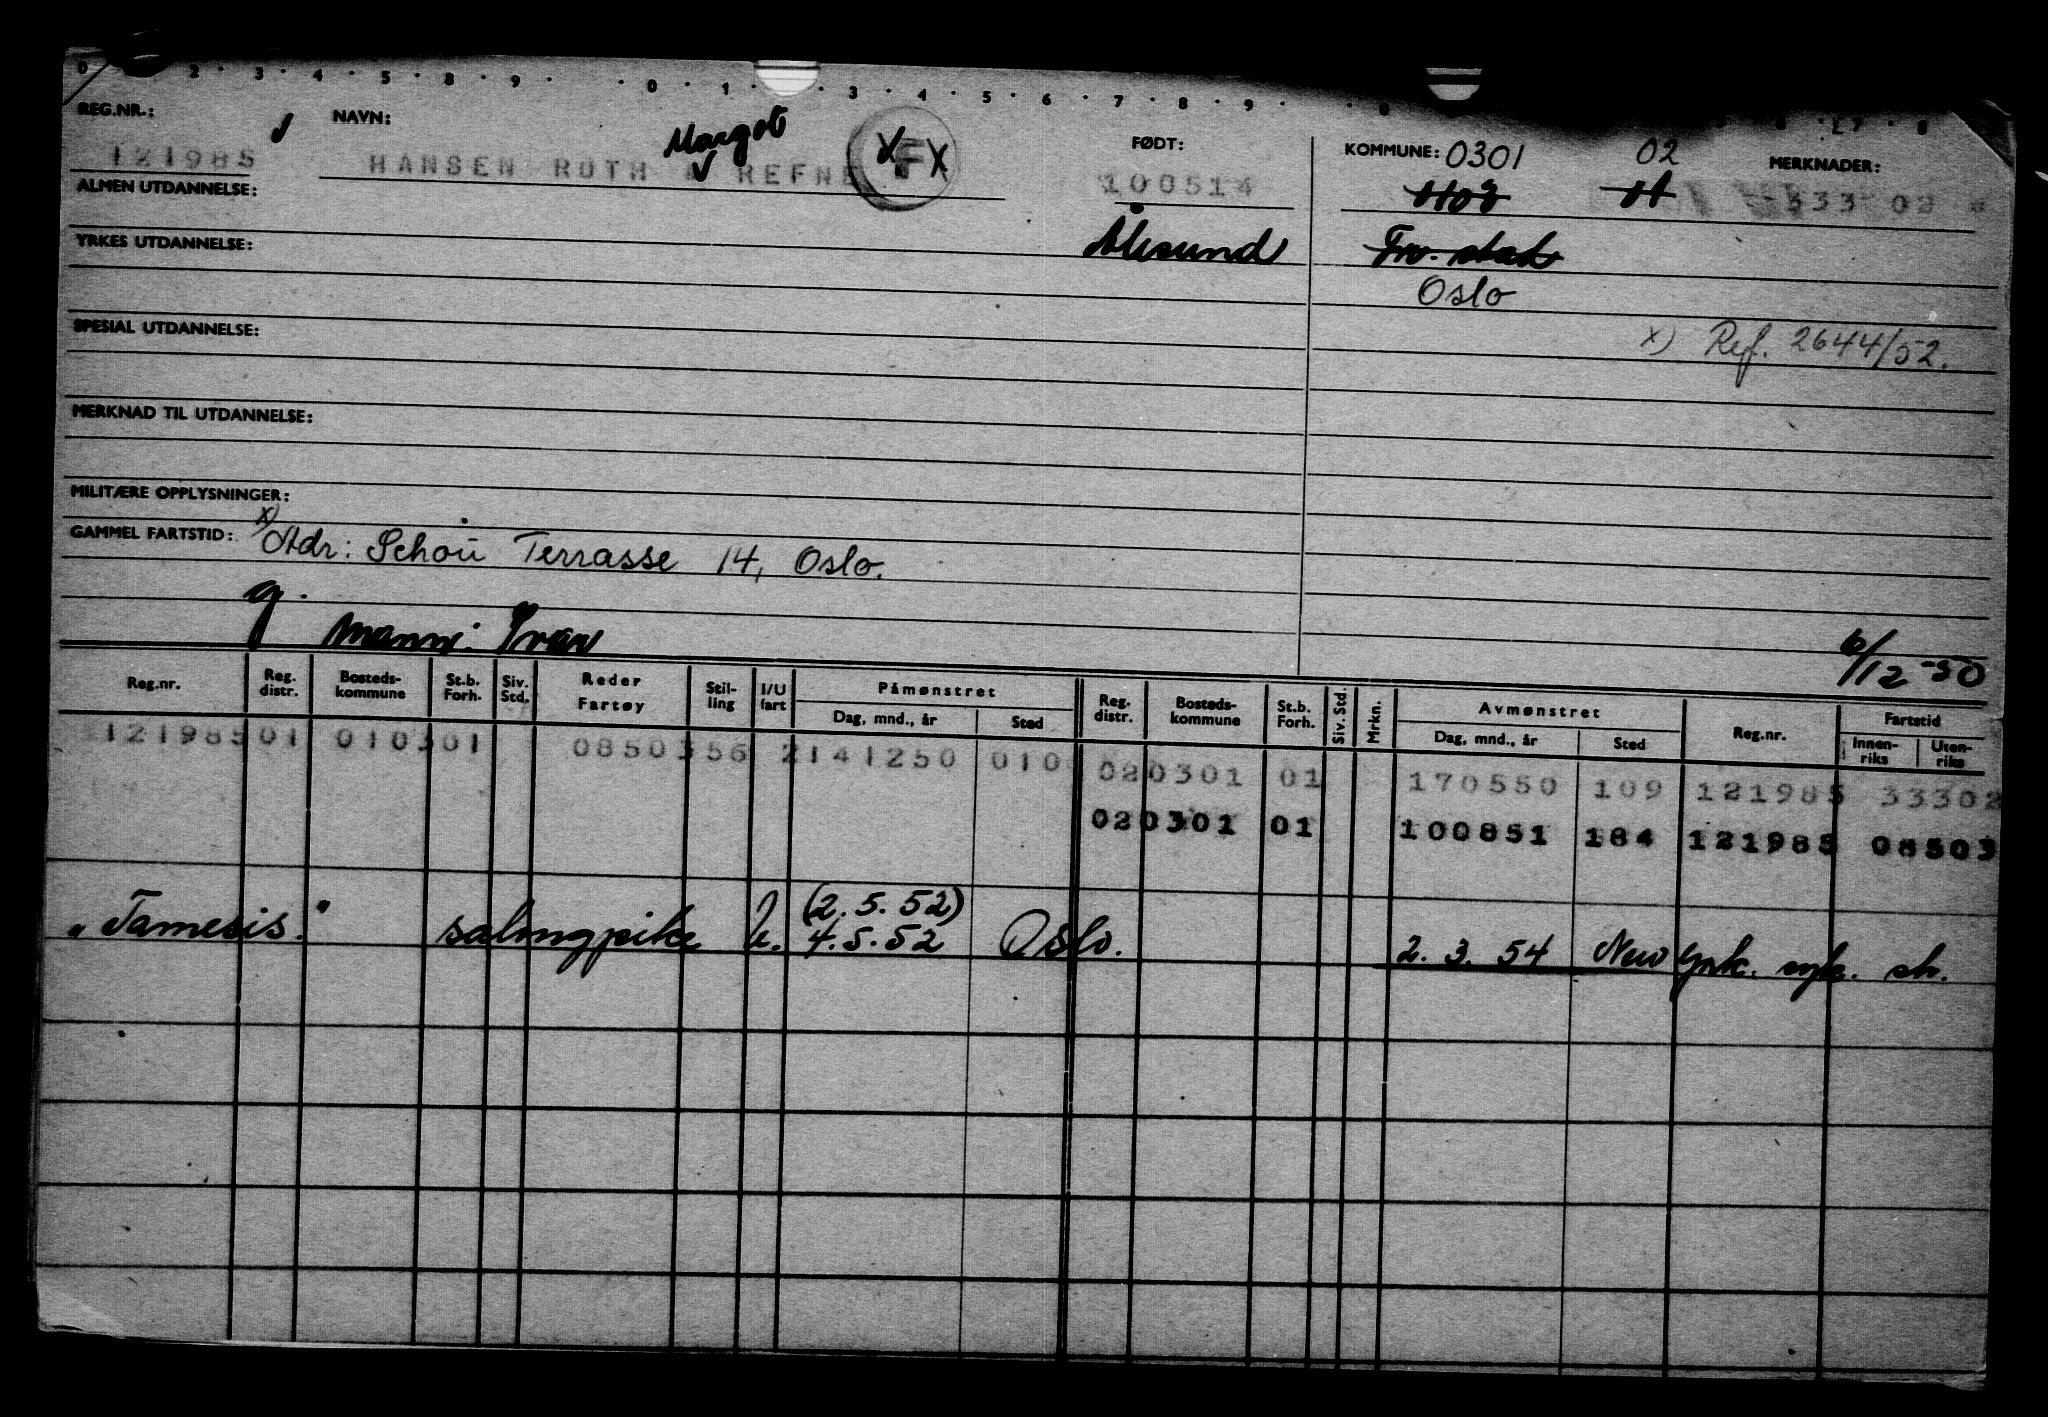 0 2 · 3 · 4 · 5 · 8 · 9 · · 0 · 1 · 3 · 4 · 5 · 6 · 7 · 8 · 9 ·
REG.NR.: NAVN: Margot FØDT: KOMMUNE: 0301 02 MERKNADER:
121985 HANSEN RUTH REFNE F X 100514 333 02
ALMEN UTDANNELSE:
YRKES UTDANNELSE: Ålesund Fr. stad
Oslo
SPESIAL UTDANNELSE: x) Ref. 2644/52.
MERKNAD TIL UTDANNELSE:
MILITÆRE OPPLYSNINGER:
GAMMEL FARTSTID: x) Adr: Schou Terrasse 14, Oslo.
g.
mann: Ivar 6/12-50
Reg.nr. Reg. distr. Bosteds-kommune St.b. Forh. Siv. Std. Reder Fartøy Stil-ling I/U fart Påmønstret Dag, mnd., år Sted Reg. distr. Bosteds-kommune St.b. Forh. Siv. Std. Mrkn. Avmønstret Dag, mnd., år Sted Reg.nr. Fartstid Innen-riks Uten-riks
121985 01 0103 01 0850356 2141250 010
020301 01 170550 109 121985 33302
020301 01 100851 184 121985 08503
(2.5.52)
"Tamesis." salongpike u. 4.5.52 Oslo. 2.3.54 New York. syk. sh.